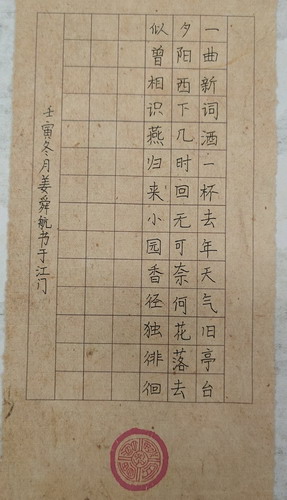 一曲新词酒一杯去年天气旧亭台
夕阳西下几时回无可奈何花落去
似曾相识燕归来小园香径独徘徊
壬寅冬月姜舜航书于江门